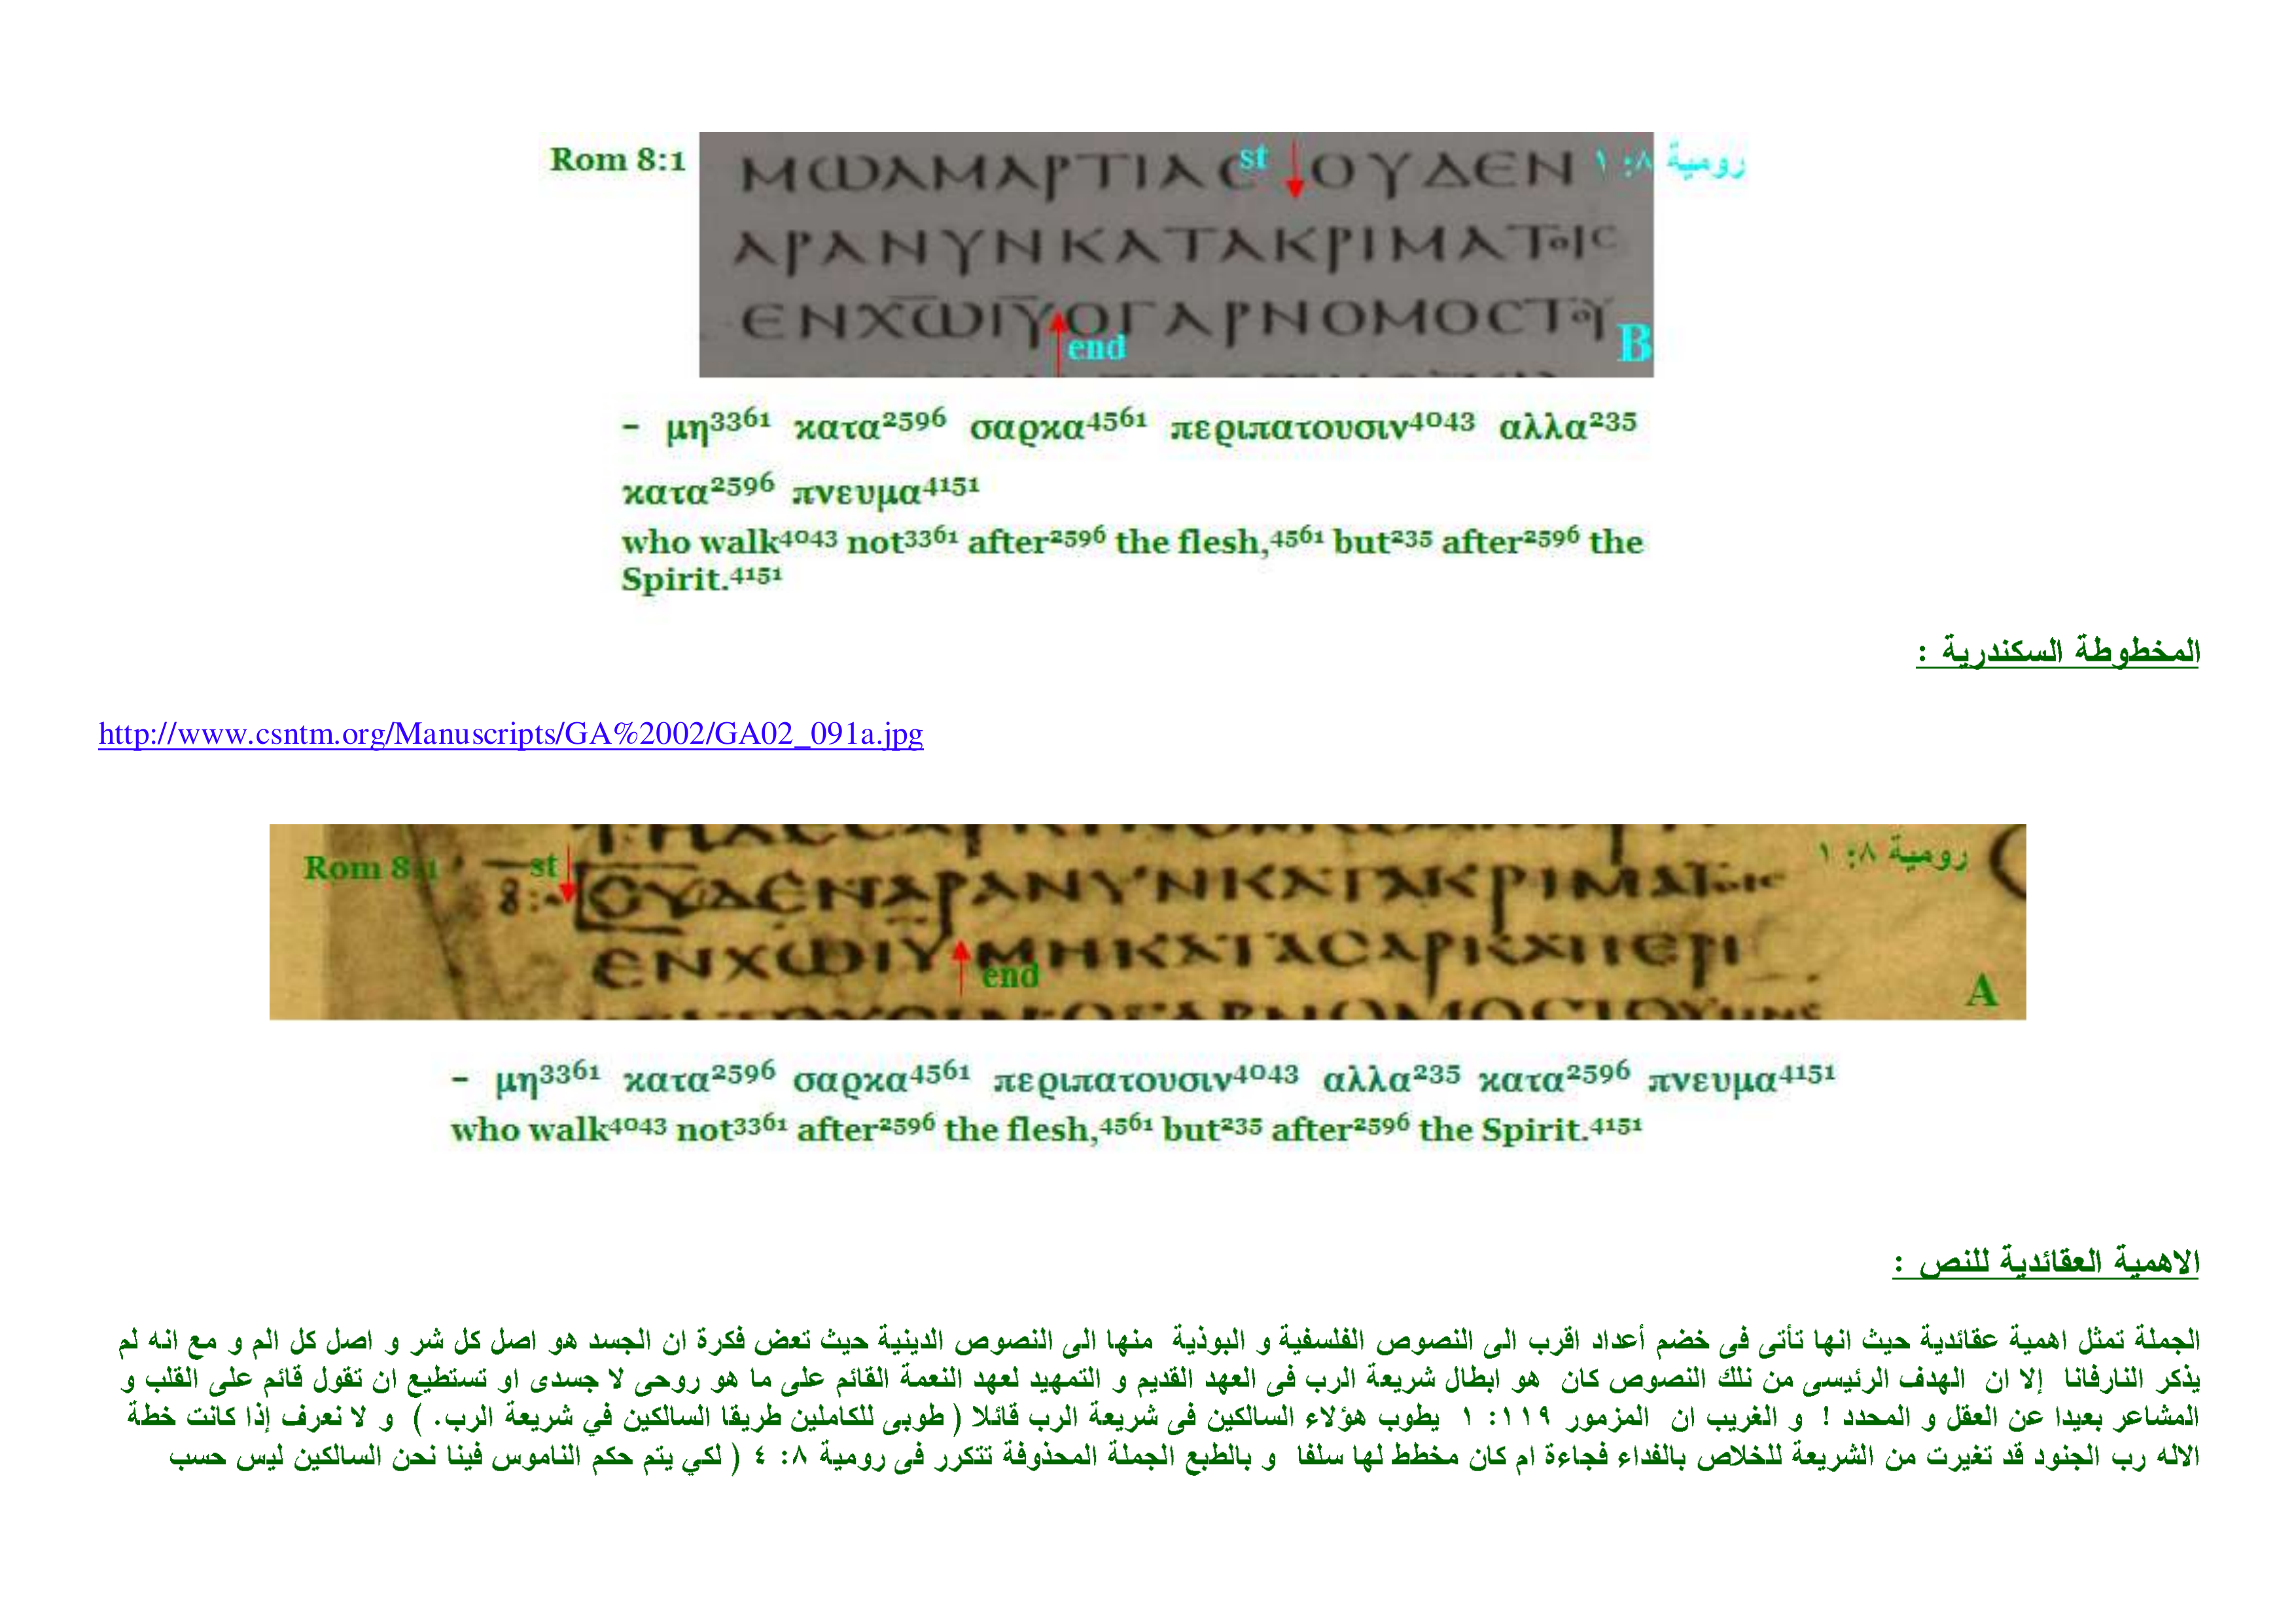 Rom 8:1
رومية ٨: ١
ΜΩΑΜΑΡΤΙΑϹ st ΟΥΔΕΝ
ΑΡΑΝΥΝΚΑΤΑΚΡΙΜΑΤΟΙϹ
ΕΝΧΩΙΥΟΓΑΡΝΟΜΟϹΤΟΥ
end
B
- μη3361 κατα2596 σαρκα4561 περιπατουσιν4043 αλλα235
κατα2596 πνευμα4151
who walk4043 not3361 after2596 the flesh,4561 but235 after2596 the
Spirit.4151
المخطوطة السكندرية :
http://www.csntm.org/Manuscripts/GA%2002/GA02_091a.jpg
Rom 8:1
st
رومية ٨: ١
ΟΥΔΕΝΑΡΑΝΥΝΚΑΤΑΚΡΙΜΑΤΟΙϹ
ΕΝΧΩΙΥΜΗΚΑΤΑϹΑΡΚΑΠΕΡΙ
end
A
- μη3361 κατα2596 σαρκα4561 περιπατουσιν4043 αλλα235 κατα2596 πνευμα4151
who walk4043 not3361 after2596 the flesh,4561 but235 after2596 the Spirit.4151
الاهمية العقائدية للنص :
الجملة تمثل اهمية عقائدية حيث انها تأتى فى خضم أعداد اقرب الى النصوص الفلسفية و البوذية منها الى النصوص الدينية حيث تعض فكرة ان الجسد هو اصل كل شر و اصل كل الم و مع انه لم
يذكر النارفانا إلا ان الهدف الرئيسى من تلك النصوص كان هو ابطال شريعة الرب فى العهد القديم و التمهيد لعهد النعمة القائم على ما هو روحى لا جسدى او تستطيع ان تقول قائم على القلب و
المشاعر بعيدا عن العقل و المحدد ! و الغريب ان المزمور ١١٩: ١ يطوب هؤلاء السالكين فى شريعة الرب قائلا ( طوبى للكاملين طريقا السالكين في شريعة الرب. ) و لا نعرف إذا كانت خطة
الاله رب الجنود قد تغيرت من الشريعة للخلاص بالفداء فجاءة ام كان مخطط لها سلفا و بالطبع الجملة المحذوفة تتكرر فى رومية ٨: ٤ ( لكي يتم حكم الناموس فينا نحن السالكين ليس حسب